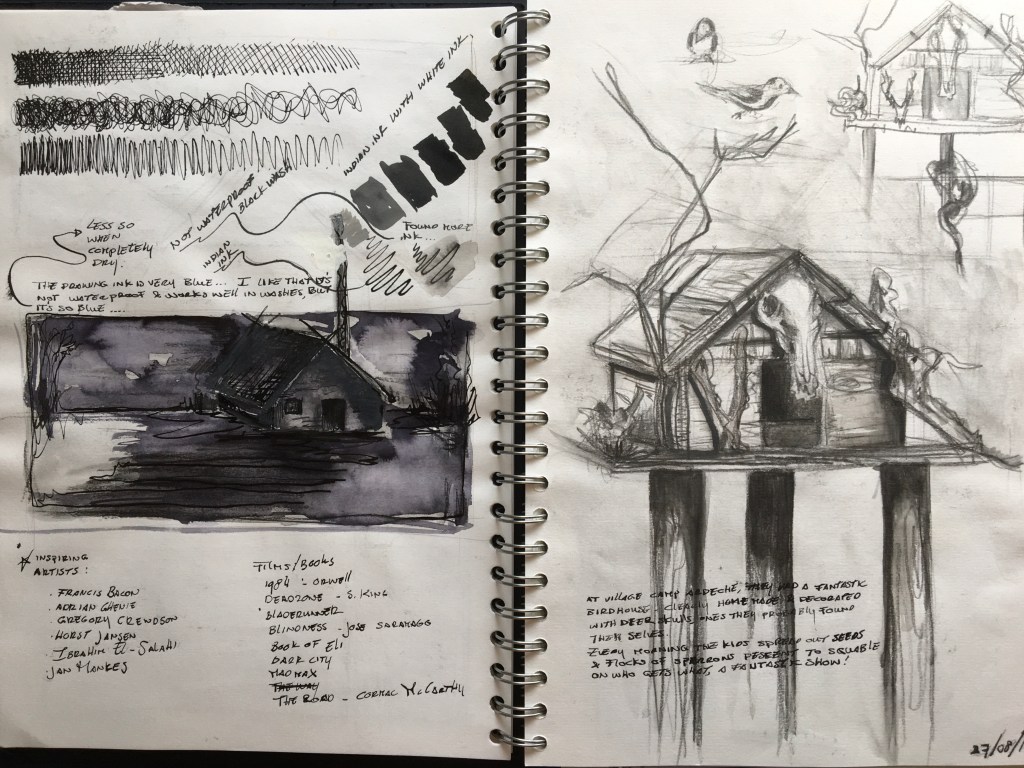 INDIAN INK WITH WHITE INK,
NOT WATERPROOF
BLACK WASH
LESS SO
WHEN
COMPLETELY
DRY.
INDIAN
INK
FOUND MORE
INK...
THE DRAWING INK IS VERY BLUE... I LIKE THAT IT'S
NOT WATERPROOF & WORKS WELL IN WASHES, BUT
IT'S SO BLUE....
* INSPIRING
ARTISTS:
· FRANCIS BACON
· ADRIAN GHENIE
GREGORY CRENDSON
· HORST JANSEN
· IBRAHIM EL-SALAHI
JAN MANKES
FILMS/BOOKS
1984 : ORWELL
DEADZONE - S. KING
BLADERUNNER
BLINDNESS - JOSE SARAMAGO
BOOK OF ELI
DARK CITY
MAD MAX
THE WAY
THE ROAD - CORMAC McCARTHY
AT VILLAGE CAMP ARDECHE, THEY HAD A FANTASTIC
BIRDHOUSE - CLEARLY HOME MADE & DECORATED
WITH DEER SKULLS, ONES THEY PROBABLY FOUND
THEMSELVES.
EVERY MORNING THE KIDS SPREAD OUT SEEDS
& FLOCKS OF SPARROWS DESCENT TO SQUABLE
ON WHO GETS WHAT, A FANTASTIC SHOW!
27/08/1